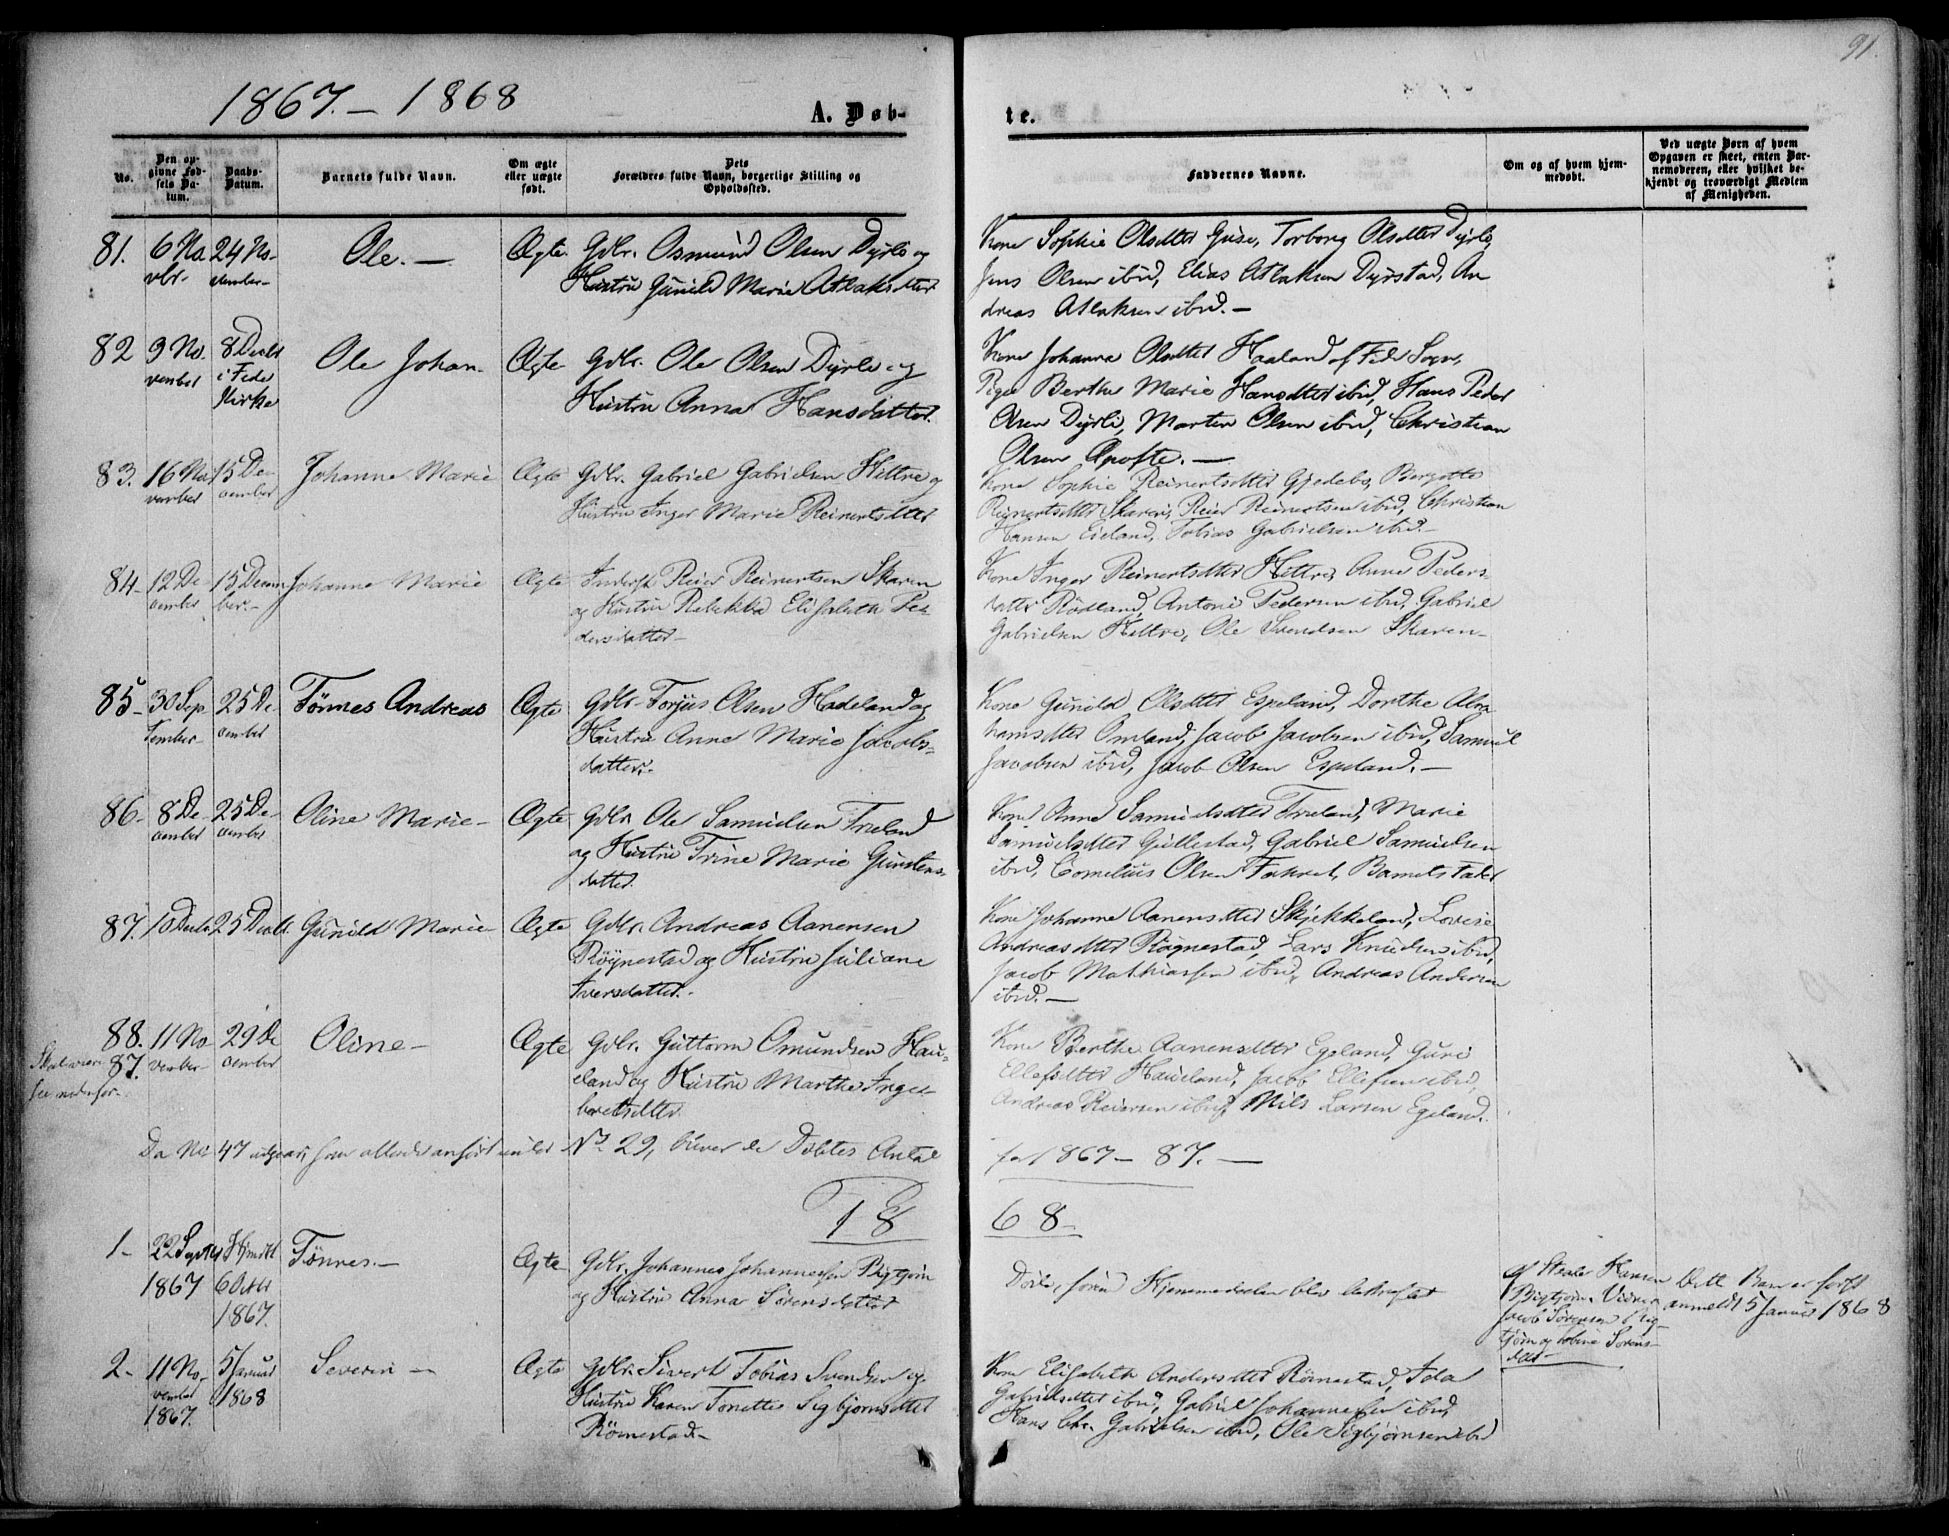 91.
1867. – 1868
A. Døb-
te.
No.
Den op-
givne Fød-
sels Da-
tum.
Daabs-
Datum.
Barnets fulde Navn.
Om ægte
eller uægte
født.
Dets
Forældres fulde Navn, borgerlige Stilling og
Opholdssted.
Faddernes Navne.
Om og af hvem hjem-
medøbt.
Ved uægte Børn af hvem
Opgaven er skeet, enten Bar-
nemoderen, eller hvilket be-
kjendt og troværdigt Medlem
af Menigheden.
81. 6 No- 24 No- Ole. – Ægte. Gdbr. Osmund Olsen Dyrli og
vbr. vember– Hustru Gunild Marie Atlaksdtter
Kone Sophie Olsdtter Guse, Torborg Olsdtter Dyrli,
Jens Olsen ibid, Elias Atlaksen Dyrstad, An
dreas Atlaksen ibid. –
82 9 No- 8 Decbr Ole Johan. Ægte Gdbr. Ole Olsen Dyrli og
vember i Fede Hustru Anna Hansdatter.
Kirke
Kone Johanna Olsdtter Haaland af Fede Sogn,
Pige Berthe Marie Hansdtter ibid, Hans Peder
Olsen Dyrli, Marten Olsen ibid, Christian
Olsen Apofte. –
83. 16 No- 15 De- Johanne Marie Ægte Gdbr. Gabriel Gabrielsen Hittre og
vember cember Hustru Inger Marie Reinertsdtter
Kone Sophie Reinertsdtter Gjedebo, Bergitte
Reinertsdtter Skaren, Reier Reinertsen ibid, Christian
Hansen Eieland, Tobias Gabrielsen ibid. –
84. 12 De- 15 Decem- Johanne Marie Ægte Inderst Reier Reinertsen Skaren
cember ber. – og Hustru Rebekka Elisabeth Pe-
dersdatter –
Kone Inger Reinertsdtter Hittre, Anne Peders-
datter Rødland, Antoni Pedersen ibid, Gabriel
Gabrielsen Hittre, Ole Svendsen Skaren –
85 – 30 Sep- 25 De- Tønnes Andreas Ægte Gdbr. Torjus Olsen Hadeland og
tember cember Hustru Anne Marie Jacobs-
datter. –
Kone Gunild Olsdtter Espeland, Dorthe Abra
hamsdtter Omland, Jacob Jacobsen ibid, Samuel
Jacobsen ibid, Jacob Olsen Espeland. –
86 – 8 De- 25 De- Oline Marie – Ægte Gdbr Ole Samuelsen Træland
cember cember og Hustru Trine Marie Gunstens-
datter.
Kone Anne Samuelsdtter Træland, Marie
Samuelsdtter Gullestad, Gabriel Samuelsen
ibid, Cornelius Olsen
87. 10 Decbr 25 Decbr. Gunild Marie Ægte Gdbr. Andreas Aanensen
Röynestad og Hustru Juliane
Iversdatter. –
Kone Johanne Aanensdtter Skjekkeland, Lovise
Andreasdtter Røynestad, Lars Knudsen ibid,
Jacob Mathiassen ibid, Andreas Andersen
ibid. –
88. 11 No- 29 De Oline – Ægte Gdbr. Guttorm Omundsen Hau-
Skal være 87. vember cember eland og Hustru Marthe Inge-
see nedenfor. – boretsdtter
Kone Berthe Aanensdtter Egeland, Guri
Ellefsdtter Haueland, Jacob Ellefsen ibid,
Andreas Reiersen ibid, Nils Larsen Egeland.
Da No 47 udgaar, som allerede anført under No 29, bliver de Døbtes Antal
for 1867 – 87. –
18
68 –
1 – 22 Septbr Hjemdbt Tønnes. – Ægte Gdbr. Johannes Johannessen Bigtjøn
1867 6 Octbr og Hustru Anna Sørensdatter
1867.
Hjemmedaaben blev bekræftet
Hansen
Bigtjøn. Vidner
Jacob Sørensen Big-
tjøn og Sørens-
datter –
Dette Barn er først
anmeldt 5 Januar 1868
2 – 11 No- 5 Januar Severin – Ægte Gdbr. Sivert Tobias Svendsen og
vember 1868 Hustru Karen Tonette Sigbjørnsdtter
1867. Römestad –
Kone Elisabeth Andersdtter Römestad, Ida
Gabrielsdtter ibid, Gabriel Johannessen ibid,
Hans Chr. Gabrielsen ibid, Ole Sigbjørnsen ibd